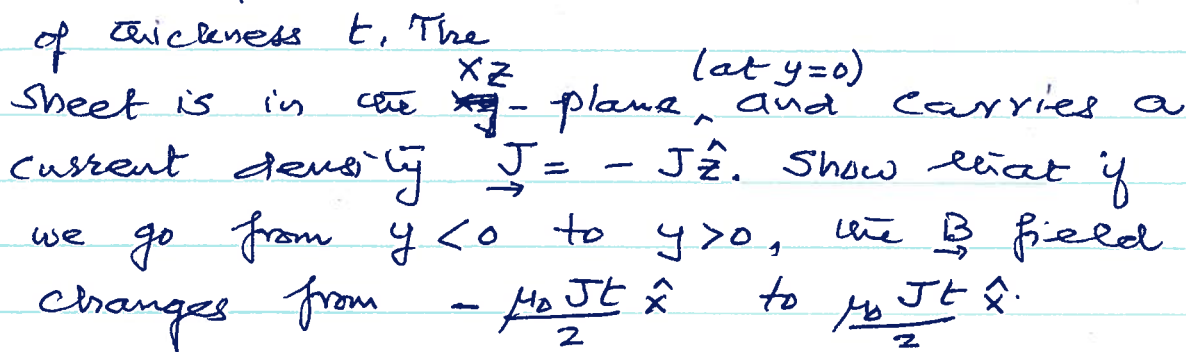 of thickness t. The
sheet is in the xz - plane (at y=0) ^ and carries a
current density J = - Jẑ. Show that if
we go from y<0 to y>0, the B field
changes from - μ₀Jt/2 x̂ to μ₀Jt/2 x̂.